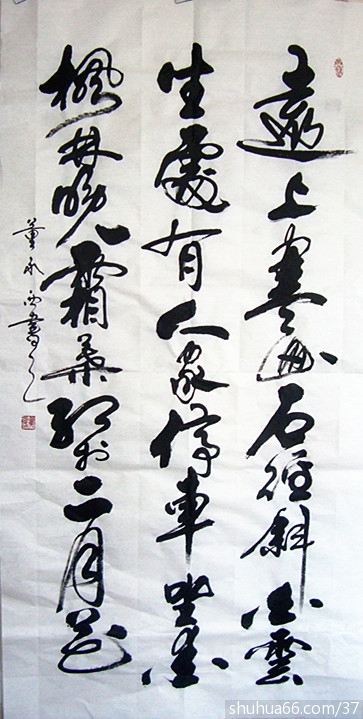 遠上寒山石徑斜白雲
生處有人家停車坐愛
楓林晚霜葉紅於二月花
董永西書
shuhua66.com/37